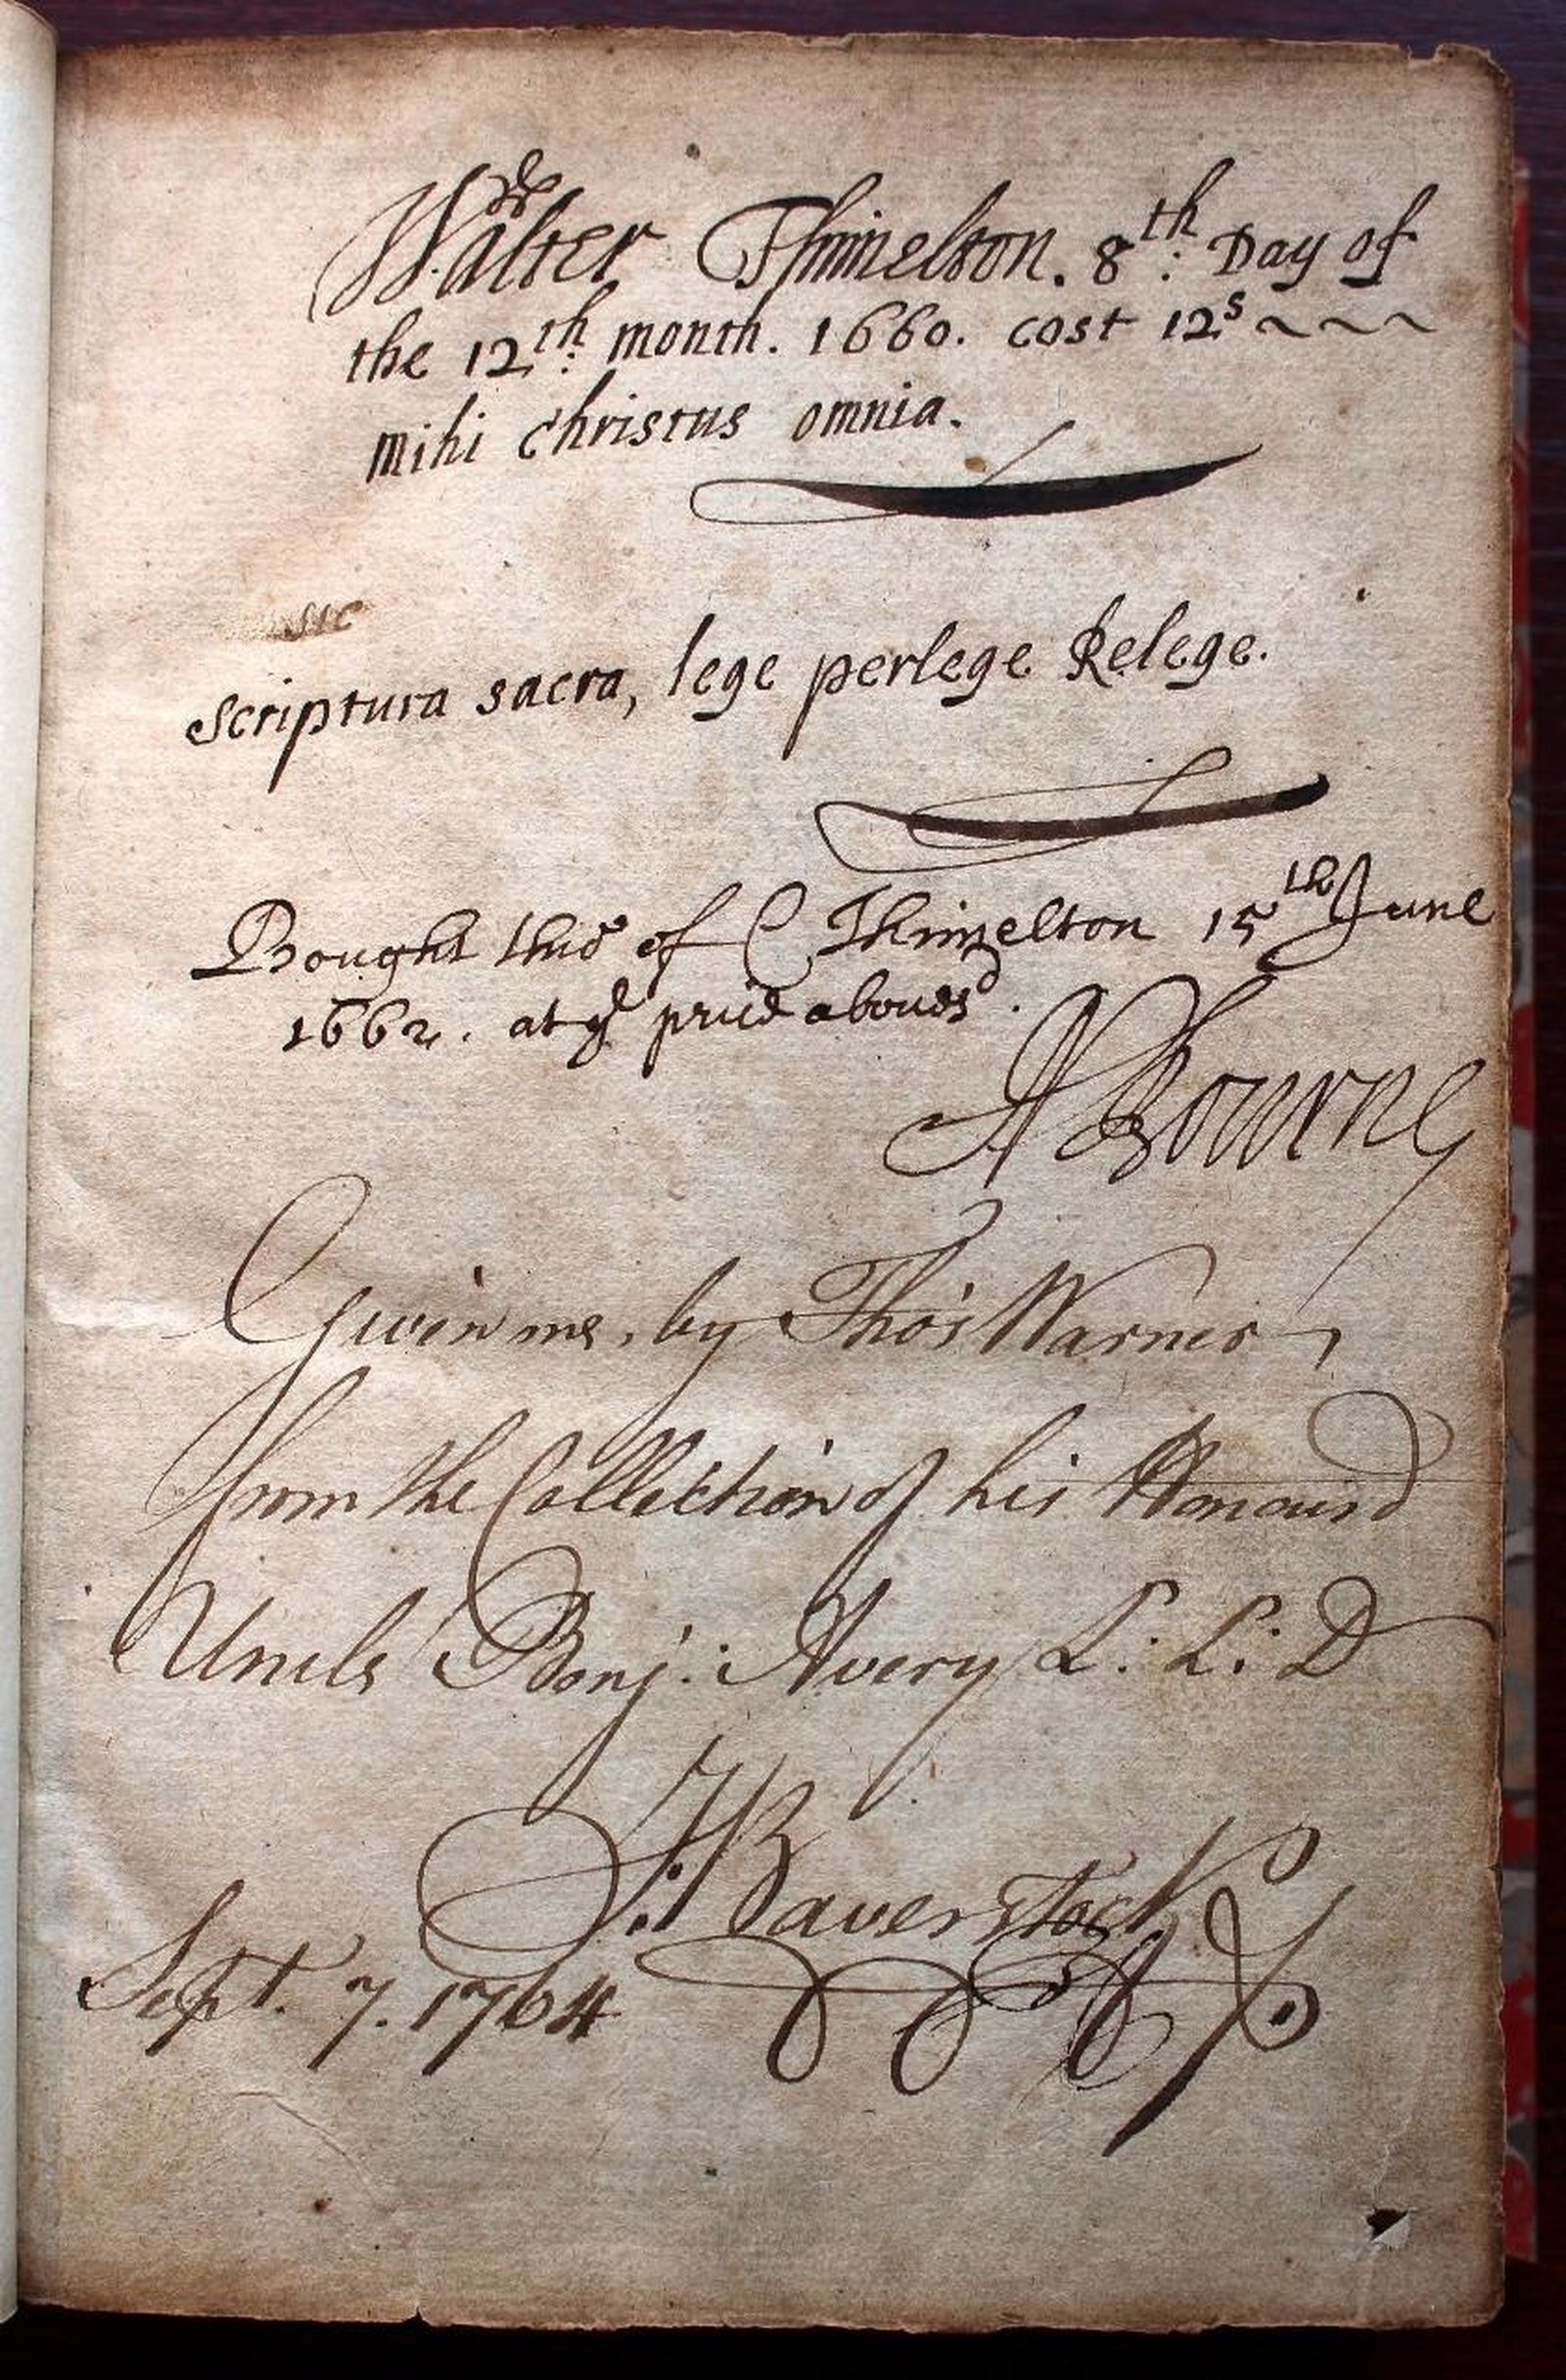 Walter Thimelton. 8th: Day of
the 12th: month. 1660. cost 12s
mihi Christus omnia.
sic
Scriptura sacra, lege perlege Relege.
Bought this of C Thimelton 15th June
1662. at ye price abovesd.
A Bourne
Given me, by Tho's Warner,
from the Collection of his Honour'd
Uncle Benj: Avery L: L: D
J: Baverstock
Sept. 7. 1764